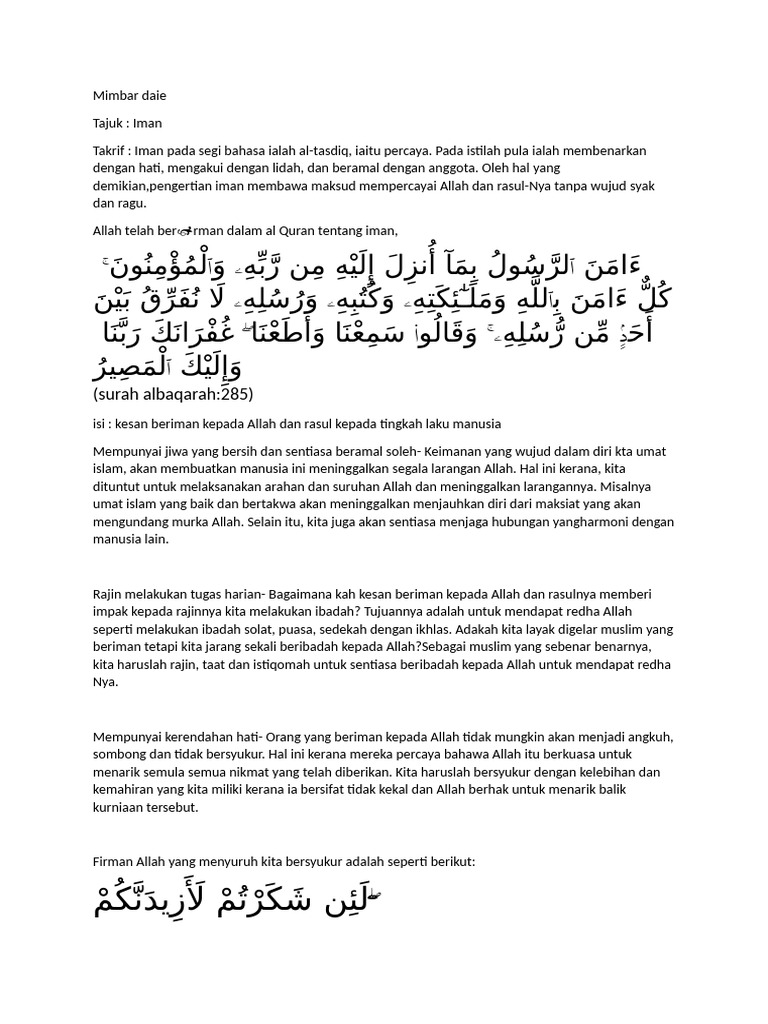 Mimbar daie
Tajuk : Iman
Takrif : Iman pada segi bahasa ialah al-tasdiq, iaitu percaya. Pada istilah pula ialah membenarkan
dengan hati, mengakui dengan lidah, dan beramal dengan anggota. Oleh hal yang
demikian,pengertian iman membawa maksud mempercayai Allah dan rasul-Nya tanpa wujud syak
dan ragu.
Allah telah ber rman dalam al Quran tentang iman,
ءَامَنَ ٱلرَّسُولُ بِمَآ أُنزِلَ إِلَيْهِ مِن رَّبِّهِۦ وَٱلْمُؤْمِنُونَ ۚ
كُلٌّ ءَامَنَ بِٱللَّهِ وَمَلَـٰٓئِكَتِهِۦ وَكُتُبِهِۦ وَرُسُلِهِۦ لَا نُفَرِّقُ بَيْنَ
أَحَدٍۢ مِّن رُّسُلِهِۦ ۚ وَقَالُوا۟ سَمِعْنَا وَأَطَعْنَا ۖ غُفْرَانَكَ رَبَّنَا
وَإِلَيْكَ ٱلْمَصِيرُ
(surah albaqarah:285)
isi : kesan beriman kepada Allah dan rasul kepada tingkah laku manusia
Mempunyai jiwa yang bersih dan sentiasa beramal soleh- Keimanan yang wujud dalam diri kta umat
islam, akan membuatkan manusia ini meninggalkan segala larangan Allah. Hal ini kerana, kita
dituntut untuk melaksanakan arahan dan suruhan Allah dan meninggalkan larangannya. Misalnya
umat islam yang baik dan bertakwa akan meninggalkan menjauhkan diri dari maksiat yang akan
mengundang murka Allah. Selain itu, kita juga akan sentiasa menjaga hubungan yangharmoni dengan
manusia lain.
Rajin melakukan tugas harian- Bagaimana kah kesan beriman kepada Allah dan rasulnya memberi
impak kepada rajinnya kita melakukan ibadah? Tujuannya adalah untuk mendapat redha Allah
seperti melakukan ibadah solat, puasa, sedekah dengan ikhlas. Adakah kita layak digelar muslim yang
beriman tetapi kita jarang sekali beribadah kepada Allah?Sebagai muslim yang sebenar benarnya,
kita haruslah rajin, taat dan istiqomah untuk sentiasa beribadah kepada Allah untuk mendapat redha
Nya.
Mempunyai kerendahan hati- Orang yang beriman kepada Allah tidak mungkin akan menjadi angkuh,
sombong dan tidak bersyukur. Hal ini kerana mereka percaya bahawa Allah itu berkuasa untuk
menarik semula semua nikmat yang telah diberikan. Kita haruslah bersyukur dengan kelebihan dan
kemahiran yang kita miliki kerana ia bersifat tidak kekal dan Allah berhak untuk menarik balik
kurniaan tersebut.
Firman Allah yang menyuruh kita bersyukur adalah seperti berikut:
لَئِن شَكَرْتُمْ لَأَزِيدَنَّكُمْ ۖ